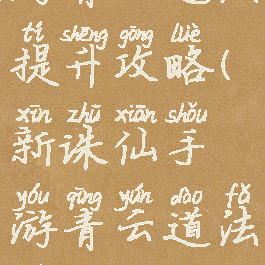 tí shēng gōng lüè
提升攻略(
xīn zhū xiān shǒu
新诛仙手
yóu qīng yún dào fǎ
游青云道法